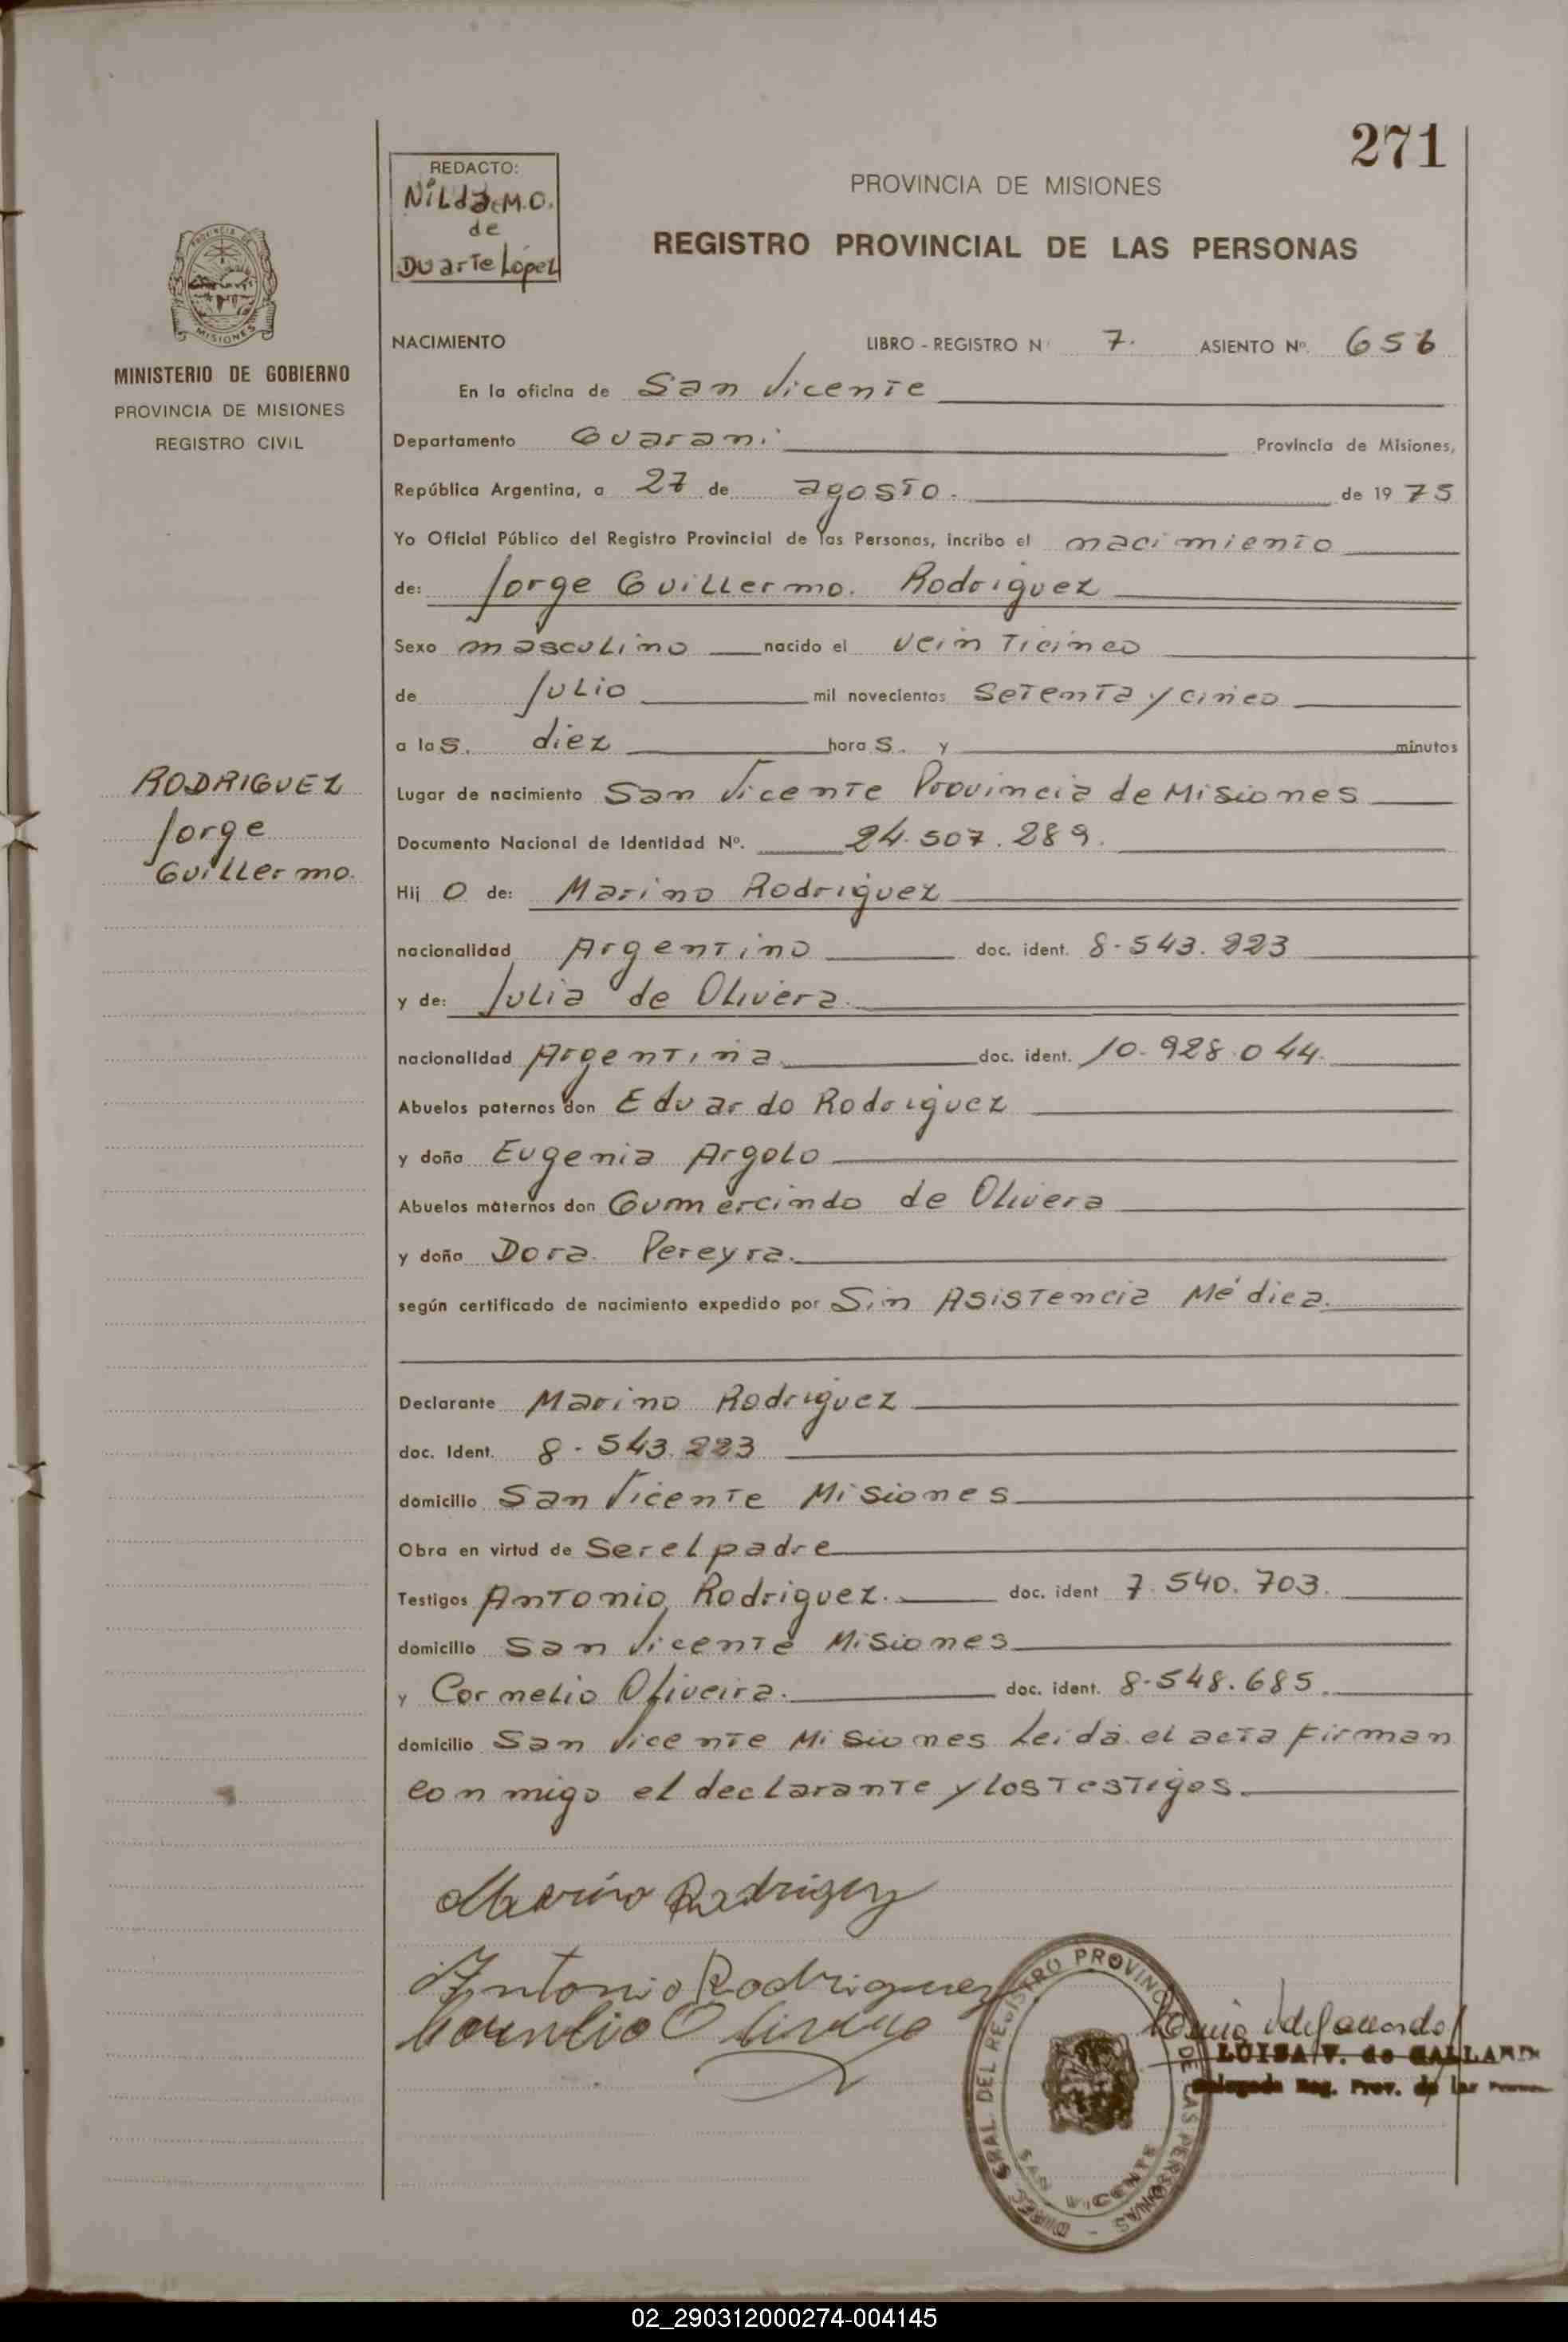 271
REDACTO:
Nilda M.O.
de
Duarte López
PROVINCIA DE MISIONES
REGISTRO PROVINCIAL DE LAS PERSONAS
PROVINCIA DE
MISIONES
MINISTERIO DE GOBIERNO
PROVINCIA DE MISIONES
REGISTRO CIVIL
NACIMIENTO LIBRO - REGISTRO N 7. ASIENTO Nº. 656
En la oficina de San Vicente
Departamento Guarani Provincia de Misiones,
República Argentina, a 27 de agosto. de 1975
Yo Oficial Público del Registro Provincial de las Personas, incribo el nacimiento
de: Jorge Guillermo. Rodriguez
Sexo masculino nacido el veinticinco
de Julio mil novecientos setenta y cinco
a las. diez horas. y minutos
RODRIGUEZ
Jorge
Guillermo.
Lugar de nacimiento San Vicente Provincia de Misiones
Documento Nacional de Identidad Nº. 24.507.289.
Hijo de: Marino Rodriguez
nacionalidad Argentino doc. ident. 8.543.223
y de: Julia de Olivera.
nacionalidad Argentina. doc. ident. 10.928.044.
Abuelos paternos don Eduardo Rodriguez
y doña Eugenia Argolo
Abuelos maternos don Gumercindo de Olivera
y doña Dora. Pereyra.
según certificado de nacimiento expedido por Sin Asistencia Médica.
Declarante Marino Rodriguez
doc. Ident. 8.543.223
domicilio San Vicente Misiones
Obra en virtud de Ser el padre
Testigos Antonio Rodriguez. doc. ident 7.540.703.
domicilio San Vicente Misiones
y Cornelio Oliveira. doc. ident. 8.548.685.
domicilio San Vicente Misiones Leida el acta firman
conmigo el declarante y los testigos.
Marino Rodriguez
Antonio Rodriguez
Cornelio Oliveira
DIREC. GRAL. DEL REGISTRO PROVINCIAL DE LAS PERSONAS -
SAN VICENTE
LUISA V. de GALLARD
Delegada Reg. Prov. de las
02_290312000274-004145